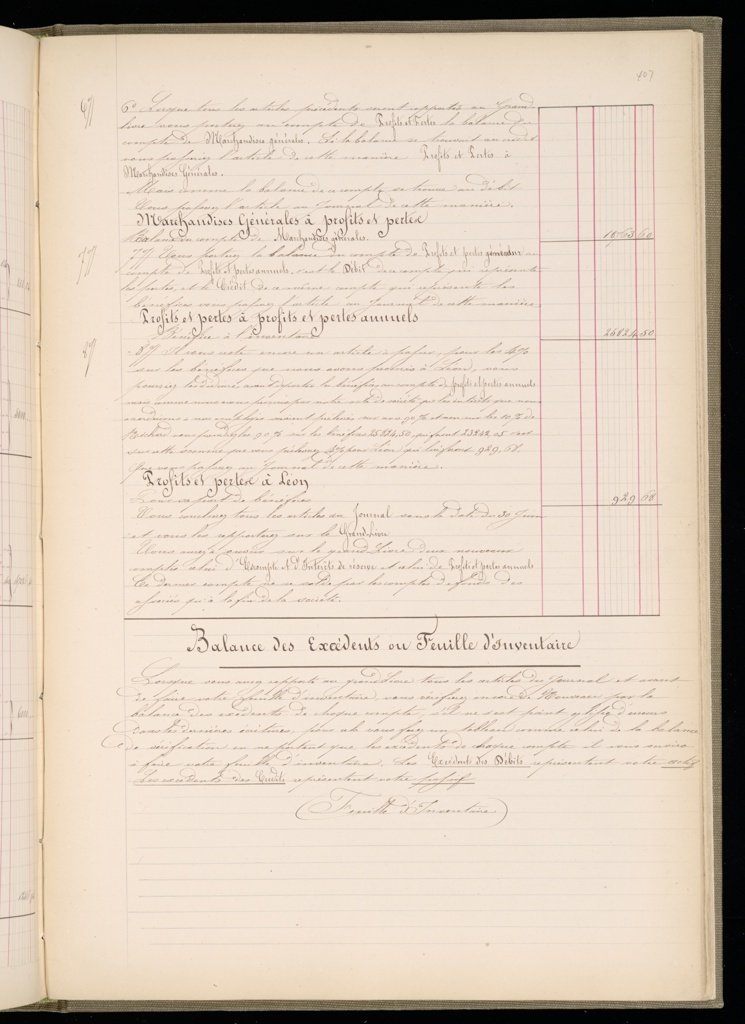 407
6°/ 6° Lorsque tous les articles précédents seront rapportés au Grand
livre vous portez au compte de Profits et Pertes la balance du
compte de Marchandises générales. Si la balance se trouvait au crédit
vous passeriez l'article de cette manière Profits et Pertes à
Marchandises Générales.
Mais comme la balance de ce compte se trouve au débit
Vous passez l'article au Journal de cette manière.
Marchandises Générales à profits et pertes
Balance du compte de Marchandises générales. 60
7°/ 7°/ Vous portez la balance du compte de Profits et pertes générales au
compte de Profits et pertes annuels, c'est le Débit du compte qui représente
les pertes, et le Crédit de ce même compte qui représente les
bénéfices vous passez l'article au Journal de cette manière
Profits et pertes à profits et pertes annuels
Bénéfice à l'inventaire 25824.50
8°/ 8°/ Il vous reste encore un article à passer, pour les 4%
sur les bénéfices que nous avons promis à Léon, vous
pourriez avant porter les bénéfices au compte de profits et pertes annuels
mais comme nous
de
vous prendrez les 90% sur les bénéfices 25824,50, qui font 23242,05 c'est
sur cette somme que vous prélevez 4% pour Léon, qui lui font 929,68.
Que vous passez au Journal de cette manière.
Profits et pertes à Léon
Pour sa part de bénéfices 929 68
Vous couchez tous les articles au Journal sous la date du 30 Juin
et vous les rapportez sur le Grand Livre
Vous avez à ouvrir sur le grand Livre deux nouveaux
comptes celui d'Escompte et d'Intérêts de réserve et celui de Profits et pertes annuels
Ce dernier compte ne se solde par les comptes de fonds des
associés qu'à la fin de la société.
Balance des Excédents ou Feuille d'Inventaire
Lorsque vous avez rapporté au grand livre tous les articles du Journal et avant
de faire votre feuille d'inventaire, vous vérifiez encore de Nouveau par la
balance des excédents de chaque compte, s'il ne s'est point glissé d'erreurs
dans les dernières écritures, pour cela vous faites un tableau comme celui de la balance
de vérification en ne portant que les excédents de chaque compte et vous servira
à faire votre feuille d'inventaire. Les Excédents des Débits représentent votre actif
Les excédents des Crédits représentent votre passif
Feuille d'Inventaire